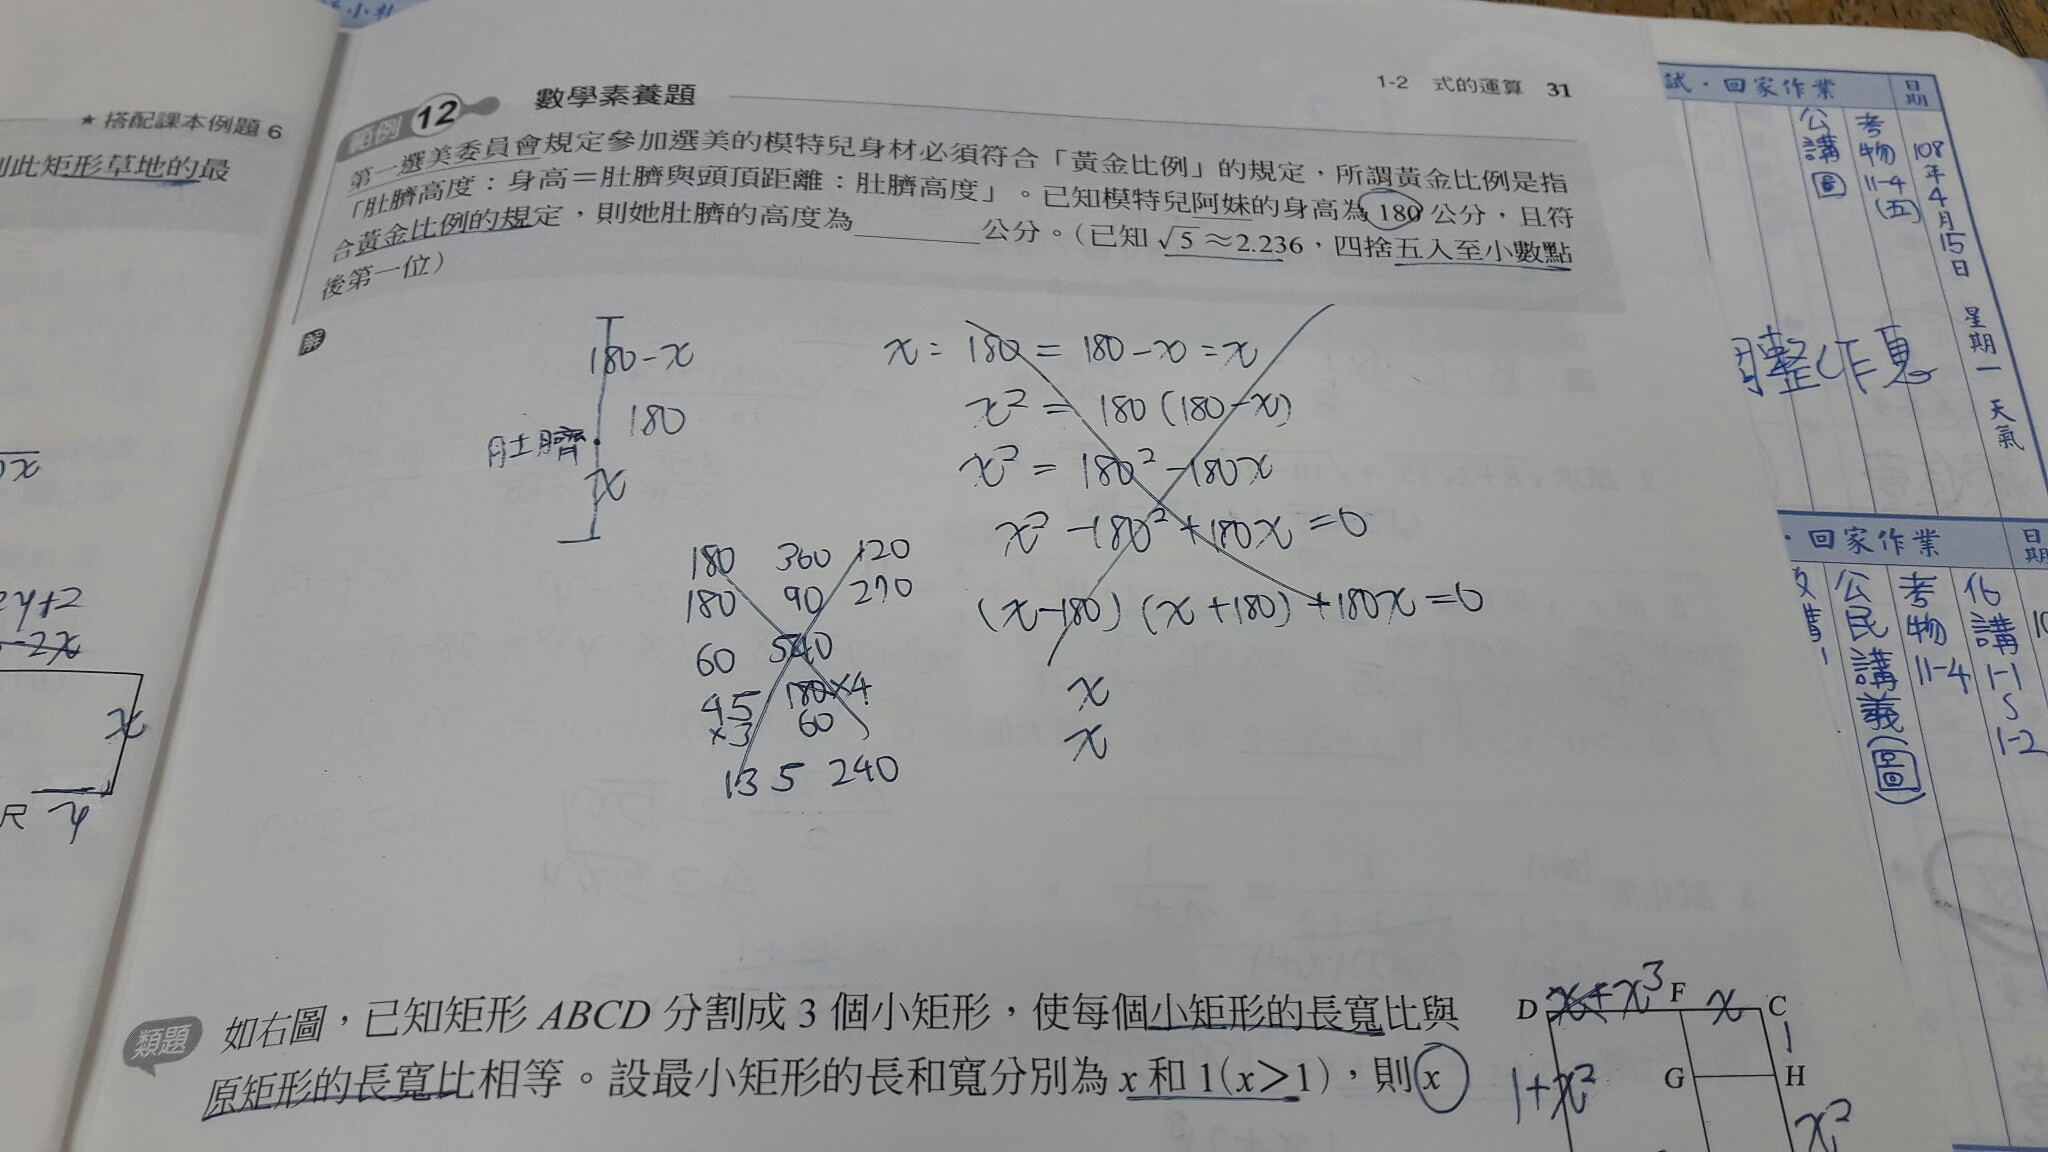 ★ 搭配課本例題 6
此矩形草地的最
x
尺
1-2 式的運算 31
範例 12 數學素養題
第一選美委員會規定參加選美的模特兒身材必須符合「黃金比例」的規定，所謂黃金比例是指
「肚臍高度：身高＝肚臍與頭頂距離：肚臍高度」。已知模特兒阿妹的身高為 180 公分，且符
合黃金比例的規定，則她肚臍的高度為________公分。（已知 √5 ≈ 2.236，四捨五入至小數點
後第一位）
解
180-x
180
肚臍
x
x = 180 = 180-x = x
x² = 180 (180-x)
x² = 180² -180x
x² -180² +180x = 0
(x-180) (x+180) +180x = 0
x
x
180 360 120
180 90 270
60 540
45 180×4
×3 60
135 240
類題 如右圖，已知矩形 ABCD 分割成 3 個小矩形，使每個小矩形的長寬比與
原矩形的長寬比相等。設最小矩形的長和寬分別為 x 和 1(x>1)，則 x
D x+x³ F x C
1
G H
1+x²
x²
試．回家作業 日期
公講圖
考物11-4(五)
108年4月15日 星期一 天氣
作息
．回家作業 日期
公民講義(圖)
考物11-4
化講1-1 1-2